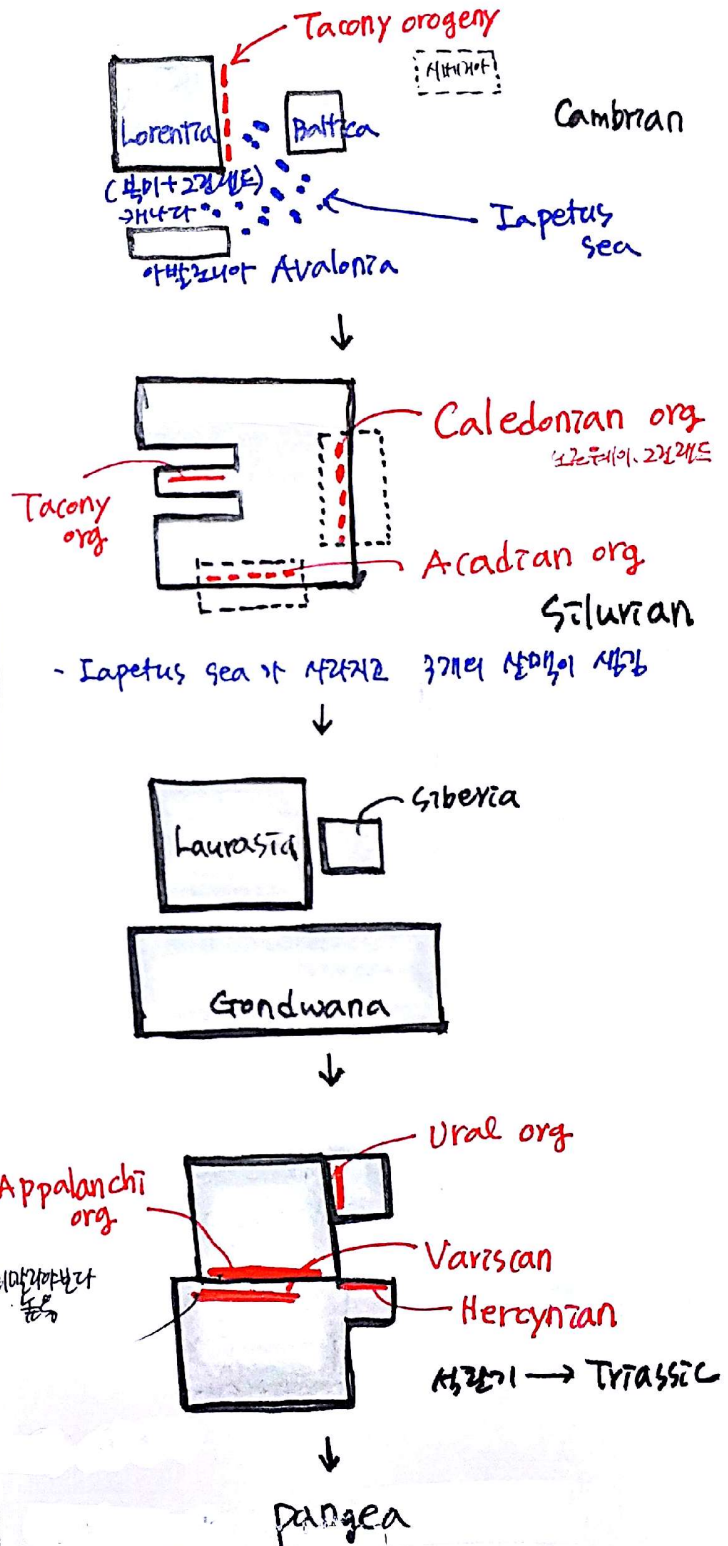 Tacony orogeny
시베리아
Cambrian
Lorentia
Baltica
(북미+그린랜드)
캐나다
Iapetus
sea
아발로니아 Avalonia
Caledonian org
노르웨이, 그린랜드
Tacony
org
Acadian org
Silurian
- Iapetus sea가 사라지고 3개의 산맥이 생김
Siberia
Laurasia
Gondwana
Ural org
Appalanchi
org
Variscan
히말라야보다
높음
Hercynian
석탄기 → Triassic
pangea